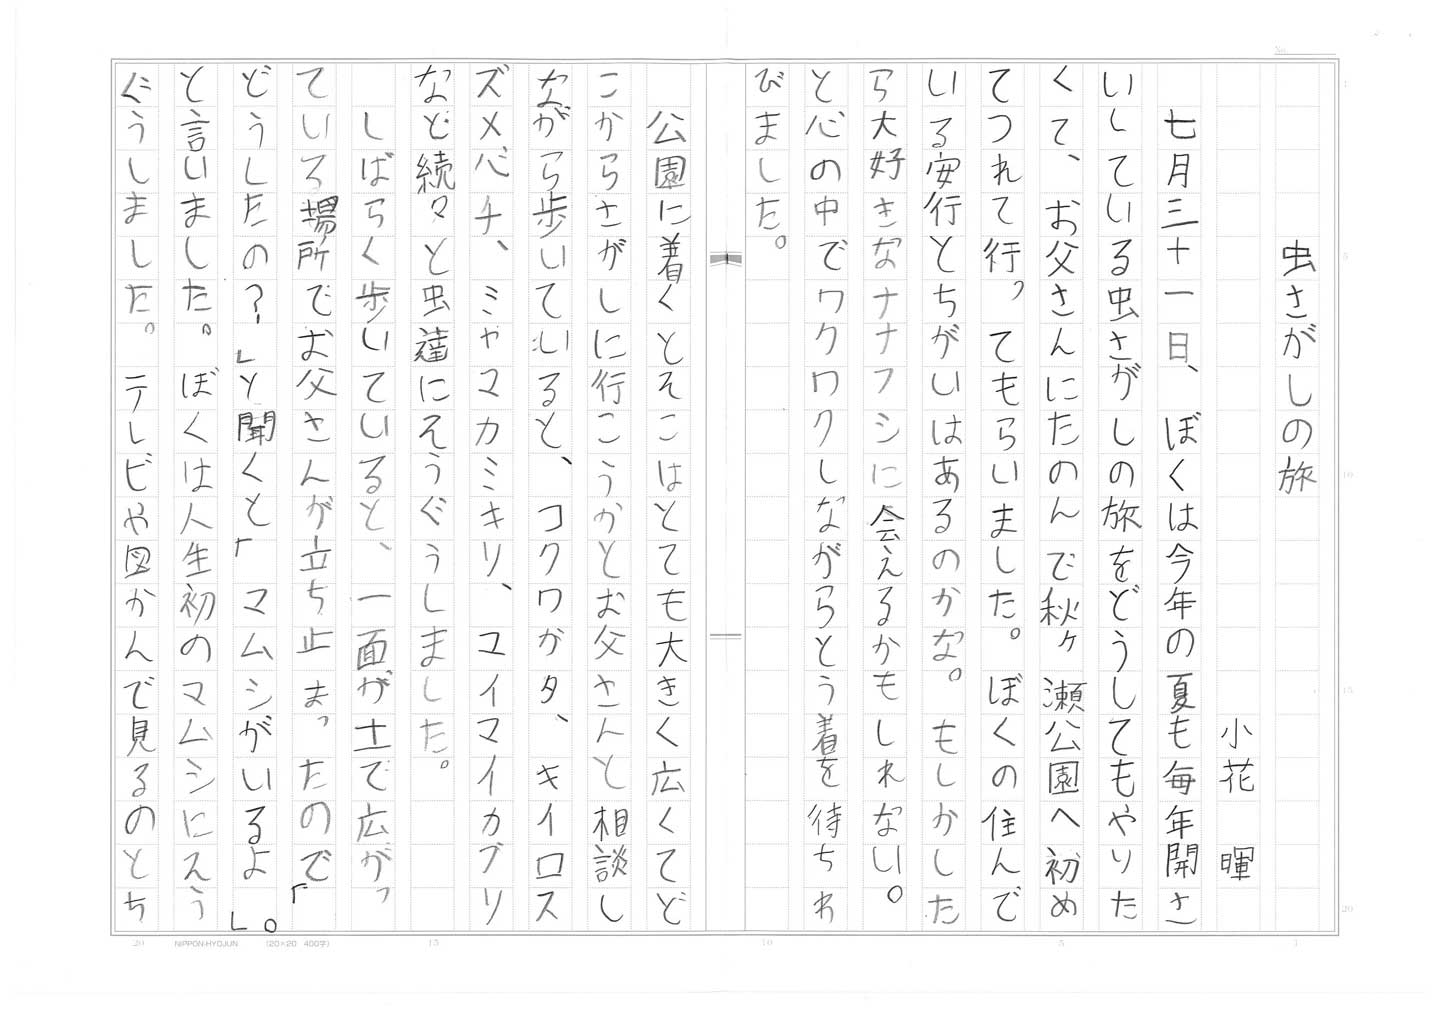 虫さがしの旅
小花 暉
七月三十一日、ぼくは今年の夏も毎年開さ
いしている虫さがしの旅をどうしてもやりた
くて、お父さんにたのんで秋ヶ瀬公園へ初め
てつれて行ってもらいました。ぼくの住んで
いる安行とちがいはあるのかな。もしかした
ら大好きなナナフシに会えるかもしれない。
と心の中でワクワクしながらとう着を待ちわ
びました。
公園に着くとそこはとても大きく広くてど
こからさがしに行こうかとお父さんと相談し
ながら歩いていると、コクワガタ、キイロス
ズメバチ、ミヤマカミキリ、ユイマイカブリ
など続々と虫達にそうぐうしました。
しばらく歩いていると、一面が土で広がっ
ている場所でお父さんが立ち止まったので「
どうしたの?」と聞くと「マムシがいるよ」。
と言いました。ぼくは人生初のマムシにそう
ぐうしました。テレビや図かんで見るのとち
NIPPON-HYOJUN (20×20 400字)